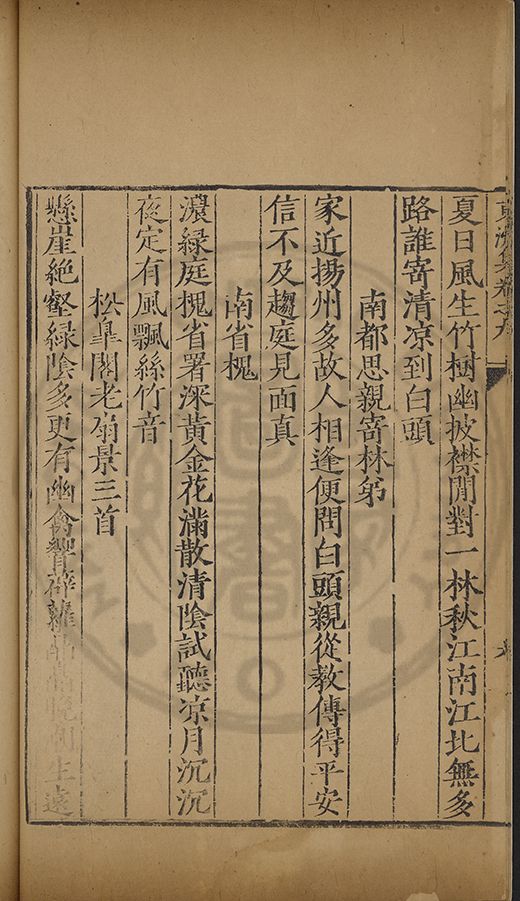 集卷之九
夏日風生竹樹幽披襟閒對一林秋江南江北無多
路誰寄清凉到白頭
南都思親寄林躬
家近揚州多故人相逢便問白頭親從教傳得平安
信不及趨庭見面真
南省槐
濃綠庭槐省署深黃金花滿散清陰試聽凉月沉沉
夜定有風飄絲竹音
松臯閣老扇景三首
懸崖絕壑綠陰多更有幽禽響薜蘿 生遠